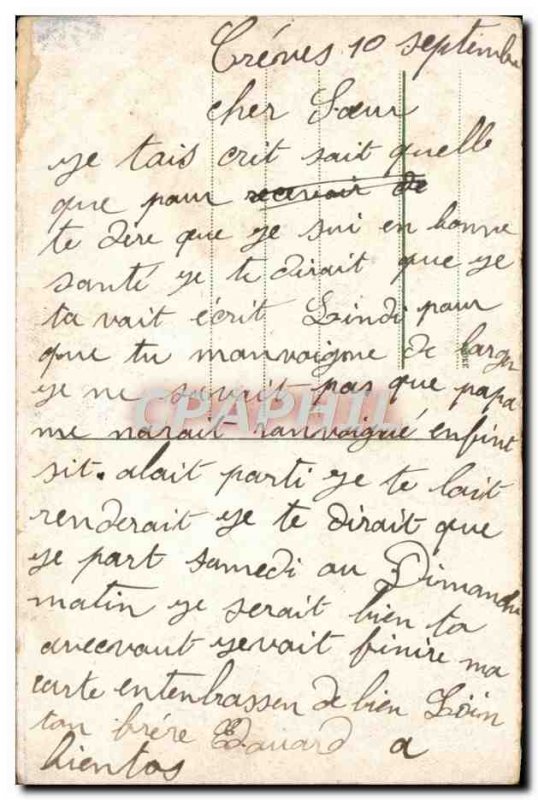 Créves 10 septembre
cher Sœur
ye tais crit sait quelle
que pour recevoir de
te dire que ye sui en bonne
santé ye te dirait que ye
ta vait écrit Lindi pour
que tu manvoigme de larger
ye ne savait pas que papa
me navait ranvoigné enfint
sit. alait parti ye te lait
renderait ye te dirait que
ye part samedi au Dimanche
matin ye serait bien ta
avecvout yevait finire ma
carte entenbrassen de bien Loin
ton frére Edouard a
bientos
CPAPHIL